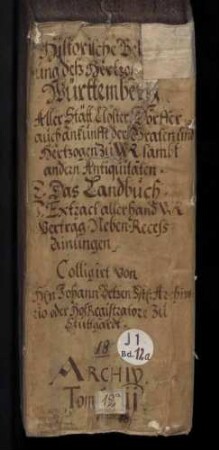 Historische Be
ung deß Hertzog
Württemberg
Aller Stätt Clöster, Dörffer
auch ankunfft der Grafen und
Hertzogen zu W. sambt
andern Antiquitäten.
Das Landbuch
Extract allerhand W.
Verträg Neben Recess
Ainungen
Colligirt von
Johann Betzen
rio oder Hof Registratore zu
Stutgardt.
18
J 1
Bd. 12a
ARCHIV
Tom II